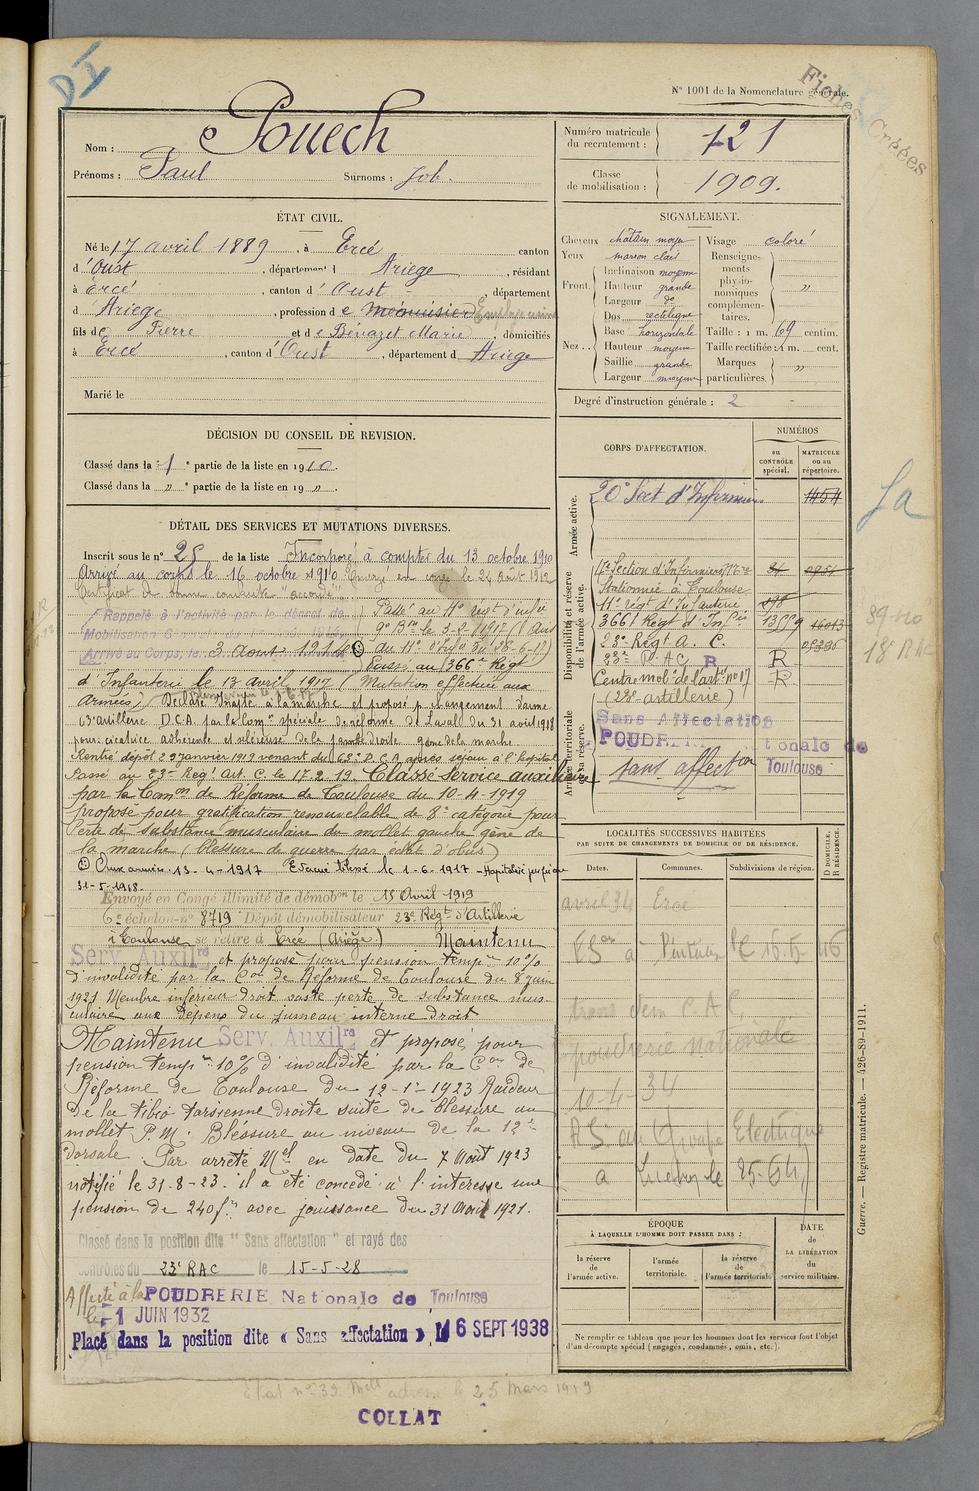 DI
N° 1001 de la Nomenclature générale.
Fiches Créées
Nom : Pouech
Prénoms : Paul Surnoms : Job.
Numéro matricule du recrutement : 721
Classe de mobilisation : 1909.
ÉTAT CIVIL.
Né le 17 avril 1889, à Ercé canton
d'Oust, département d Ariege, résidant
à Ercé, canton d'Oust département
d Ariege, profession de menuisier Employé usine
fils de Pierre et de Bénazet Marie, domiciliés
à Ercé, canton d'Oust, département d Ariege
Marié le
SIGNALEMENT.
Cheveux châtain moyen
Yeux marron clair
Front. Inclinaison moyenne
Hauteur grande
Largeur do
Nez.. Dos rectiligne
Base horizontale
Hauteur moyenne
Saillie grande
Largeur moyenne
Visage coloré
Renseignements physionomiques complémentaires. "
Taille : 1 m. 69 centim.
Taille rectifiée : 1 m. cent.
Marques particulières. "
Degré d'instruction générale : 2
DÉCISION DU CONSEIL DE REVISION.
Classé dans la 1e partie de la liste en 1910.
Classé dans la " e partie de la liste en 19 ".
DÉTAIL DES SERVICES ET MUTATIONS DIVERSES.
Inscrit sous le n° 25 de la liste Incorporé à compter du 13 octobre 1910
Arrivé au corps le 16 octobre 1910 Envoyé en congé le 24 Août 1912
Certificat de bonne conduite "accordé".
Rappelé à l'activité par le décret de
Mobilisation Générale
Arrivé au Corps, le 3 Aout 1914
Passé au 11e régt d'infie
9e Bon le 3-2-1917
au 11e d'Infie du 28-6-17)
Passé au 366e Régt
d'Infanterie le 13 avril 1917 (Mutation effectuée aux
Armées) Déclaré Inapte à la marche et proposé p. changement d'arme
63e artillerie D.C.A. par la Comon spéciale de réforme de Laval du 31 aout 1918
pour: cicatrice adhérente et chéloïense de la jambe droite gêne de la marche.
Rentré dépôt 29 janvier 1919 venant du 63e D.C.A après séjour à l'hopital
Passé au 23e Régt Art. C. le 17.2.19. Classé Service auxiliaire
par la Comon de Réforme de Toulouse du 10-4-1919
proposé pour gratification renouvelable de 8e catégorie pour
Perte de substance musculaire du mollet gauche gêne de
la marche (blessure de guerre par éclat d'obus)
Aux armées 13-4-1917 Evacué blessé le 1-6-1917 - Hospitalisé jusqu'au
31-5-1918.
Envoyé en Congé illimité de démobon le 15 Avril 1919
6e échelon n° 8719 Dépôt démobilisateur 23e Régt d'Artillerie
à Toulouse se retire à Ercé (Ariège) Maintenu
Serv. Auxilre et proposé pour pension temp.re 10 %
d'invalidité par la Con de Réforme de Toulouse du 8 juin
1921 Membre inférieur droit vaste perte de substance mus-
culaire aux dépens du jumeau interne droit
Maintenu Serv. Auxilre et proposé pour
pension tempre 10% d'invalidité par la Con de
Réforme de Toulouse du 12-1-1923 Raideur
de la tibio tarsienne droite suite de blessure au
mollet P.M. Bléssure au niveau de la 12e
dorsale. Par arrêté Mel en date du 7 Août 1923
notifié le 31-8-23. il a été concédé à l'intéressé une
pension de 240f avec jouissance du 31 Aout 1921.
Classé dans la position dite "Sans affectation" et rayé des
contrôles du 23e RAC le 15-5-28
Affecté à la POUDRERIE Nationale de Toulouse
le 1 JUIN 1932
Placé dans la position dite « Sans affectation », le 16 SEPT 1938
CORPS D'AFFECTATION.
NUMÉROS
au CONTRÔLE spécial.
MATRICULE ou au répertoire.
Armée active.
20e Sect d'Infirmiers 1454
Disponibilité et réserve de l'armée active.
17e Section d'Infirmiers Mres
Stationnée à Toulouse
11e régt d'Infanterie
366e Régt d'Infie 13559 16013
23e Régt A. C.
23e RAC R R
Centre mob. de l'artie n° 17 R
(23e artillerie)
Armée territoriale et sa réserve.
Sans Affectation
POUDRERIE Nationale de
Toulouse
sans affecton
Ja
18 RAC
LOCALITÉS SUCCESSIVES HABITÉES
PAR SUITE DE CHANGEMENTS DE DOMICILE OU DE RÉSIDENCE.
Dates. Communes. Subdivisions de région. D DOMICILE, R RÉSIDENCE.
avril 34 Ercé
poudrerie nationale
10-4-34
Electrique
ÉPOQUE
À LAQUELLE L'HOMME DOIT PASSER DANS :
la réserve de l'armée active.
l'armée territoriale.
la réserve de l'armée territoriale.
DATE DE LA LIBÉRATION du service militaire.
Ne remplir ce tableau que pour les hommes dont les services font l'objet
d'un décompte spécial (engagés, condamnés, omis, etc.).
Guerre. — Registre matricule. — 426-89-1911.
Etat n° 39 adressé le 25 Mars 1919
COLLAT